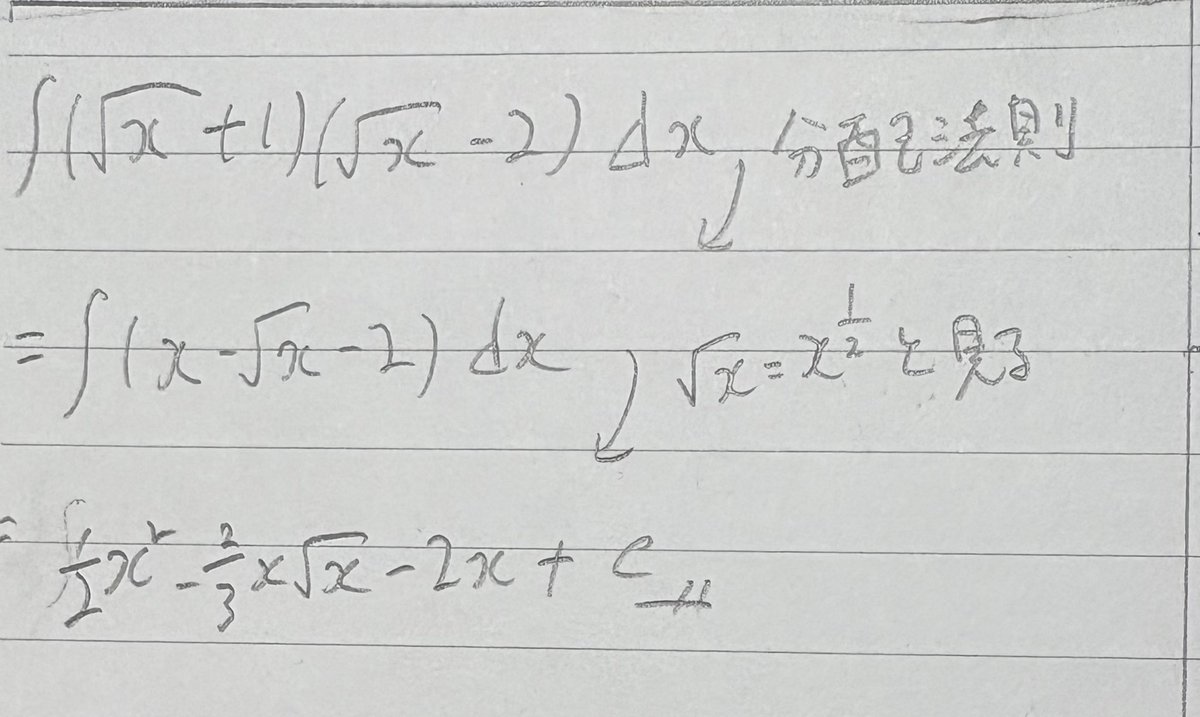 ∫(√x+1)(√x-2) dx 分配法則
=∫(x-√x-2) dx √x=x^{1/2}と見る
= 1/2x²-2/3x√x-2x+C